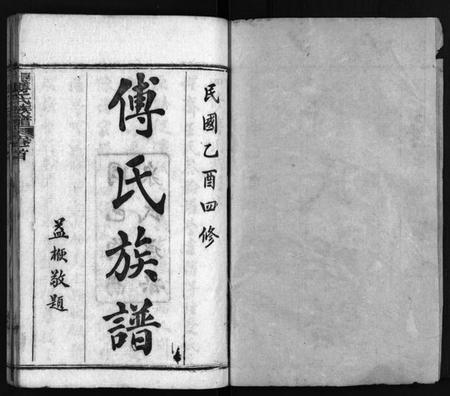 民國乙酉四修
傅氏族譜
益樾敬題